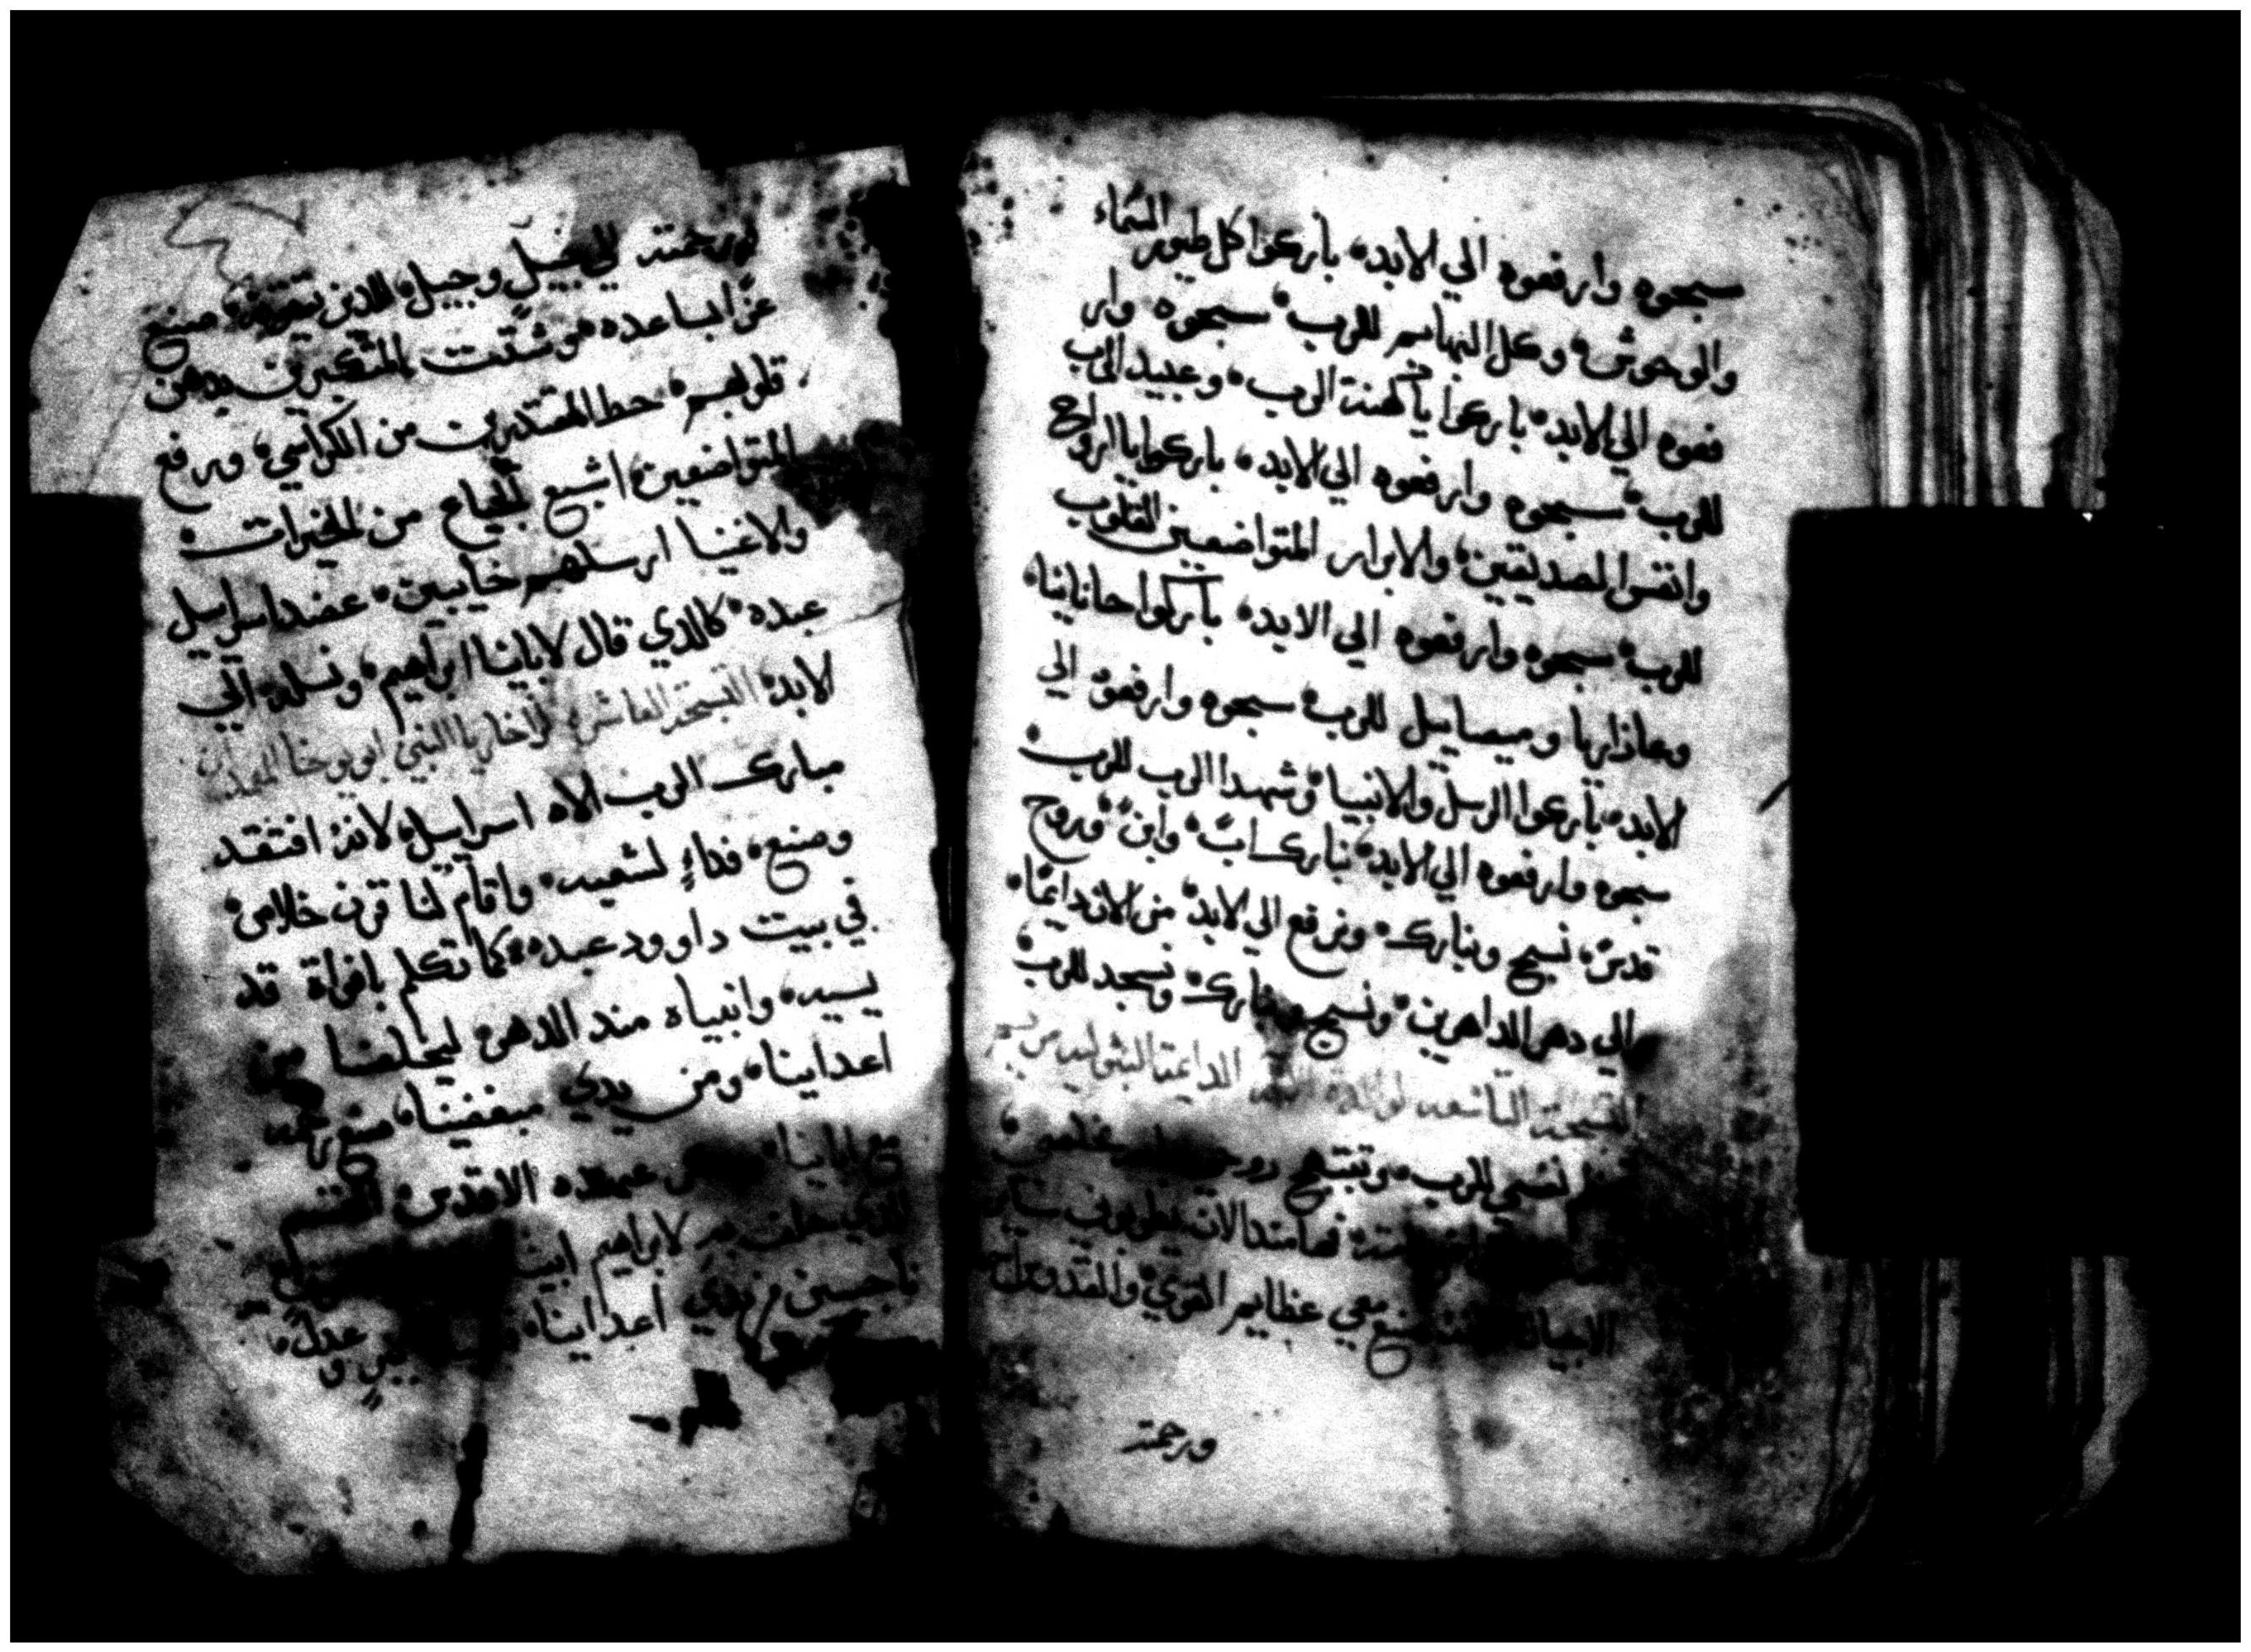 سبحوه وارفعوه الي الابد، باركوا كل طيور السماء
والوحوش، وكل البهايم للرب، سبحوه وار
فعوه الي الابد، باركوا يا كهنة الرب، وعبيد الرب
للرب، سبحوه وارفعوه الي الابد، باركوا يا ارواح
وانفس الصديقين، والابرار المتواضعين القلوب
للرب، سبحوه وارفعوه الي الابد، باركوا حانانيا،
وعازاريا وميصاييل للرب، سبحوه وارفعوه الي
الابد، باركوا الرسل والانبيا، وشهدا الرب للرب
سبحوه وارفعوه الي الابد، نبارك اب، وابن، وروح
قدس، نسبح ونبارك، ونرفع الي الابد، من الان دايمًا،
والي دهر الداهرين، ونسبح ونبارك، ونسجد للرب
التسبحة التاسعه لوالدة الداعمة البتوليه مريم
نفسي للرب، وتبتهج روحي مخلصي
فها منذ الان يطوبوني ساير
الاجيال صنع معي عظايم القوي، والقدوس اسمه
ورحمته
ورحمته الي جيل وجيل، للذين يتقونه، صنع
عزًا بساعده، وشتت المتكبرين بدهن
قلوبهم، حط المقتدرين من الكراسي، ورفع
المتواضعين، اشبع الجياع من الخيرات،
والاغنيا ارسلهم خايبين، عضد اسراييل
عبده، كالذي قال لابائنا ابراهيم، ونسله الي
الابد، التسبحة العاشره لزاخاريا النبي ابو يوحنا المعمدان
مبارك الرب الاه اسراييل، لانه افتقد
وصنع، فداءٍ لشعبه، واقام لنا قرن خلاص،
في بيت داوود عبده، كما تكلم بافواة قد
يسيه، وانبياه منذ الدهر، ليخلصنا من
اعداينا، ومن يدي مبغضينا، صنع رحمه
مع ابائنا، عهده الاقدس، القسم
الذي حلف به لابراهيم ابينا
ناجيين من يدي اعداينا، وعدل،